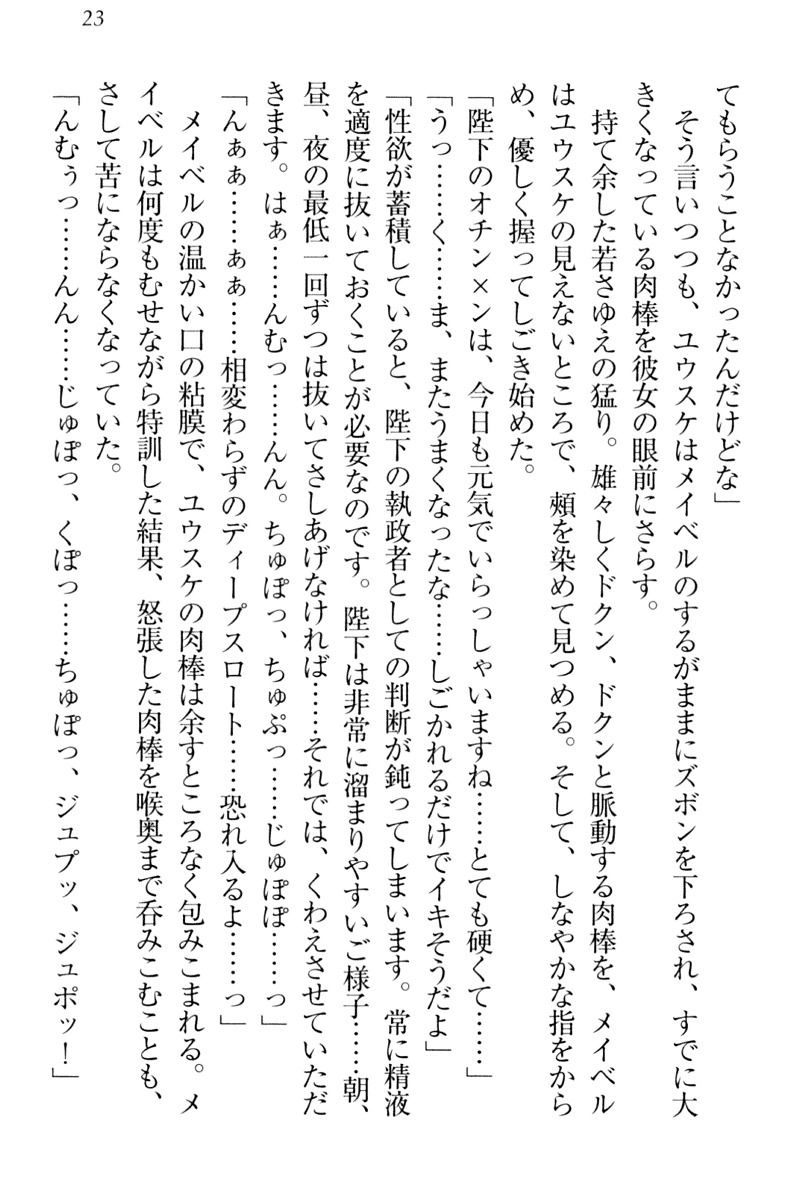 23
てもらうことなかったんだけどな」
　そう言いつつも、ユウスケはメイベルのするがままにズボンを下ろされ、すでに大
きくなっている肉棒を彼女の眼前にさらす。
　持て余した若さゆえの猛り。雄々しくドクン、ドクンと脈動する肉棒を、メイベル
はユウスケの見えないところで、頬を染めて見つめる。そして、しなやかな指をから
め、優しく握ってしごき始めた。
「陛下のオチン×ンは、今日も元気でいらっしゃいますね……とても硬くて……」
「うっ……く……ま、またうまくなったな……しごかれるだけでイキそうだよ」
「性欲が蓄積していると、陛下の執政者としての判断が鈍ってしまいます。常に精液
を適度に抜いておくことが必要なのです。陛下は非常に溜まりやすいご様子……朝、
昼、夜の最低一回ずつは抜いてさしあげなければ……それでは、くわえさせていただ
きます。はぁ……んむっ……んん。ちゅぽっ、ちゅぷっ……じゅぽぽ……っ」
「んぁぁ……ぁぁ……相変わらずのディープスロート……恐れ入るよ……っ」
　メイベルの温かい口の粘膜で、ユウスケの肉棒は余すところなく包みこまれる。メ
イベルは何度もむせながら特訓した結果、怒張した肉棒を喉奥まで呑みこむことも、
さして苦にならなくなっていた。
「んむぅっ……んん……じゅぽっ、くぽっ……ちゅぽっ、ジュプッ、ジュポッ！」